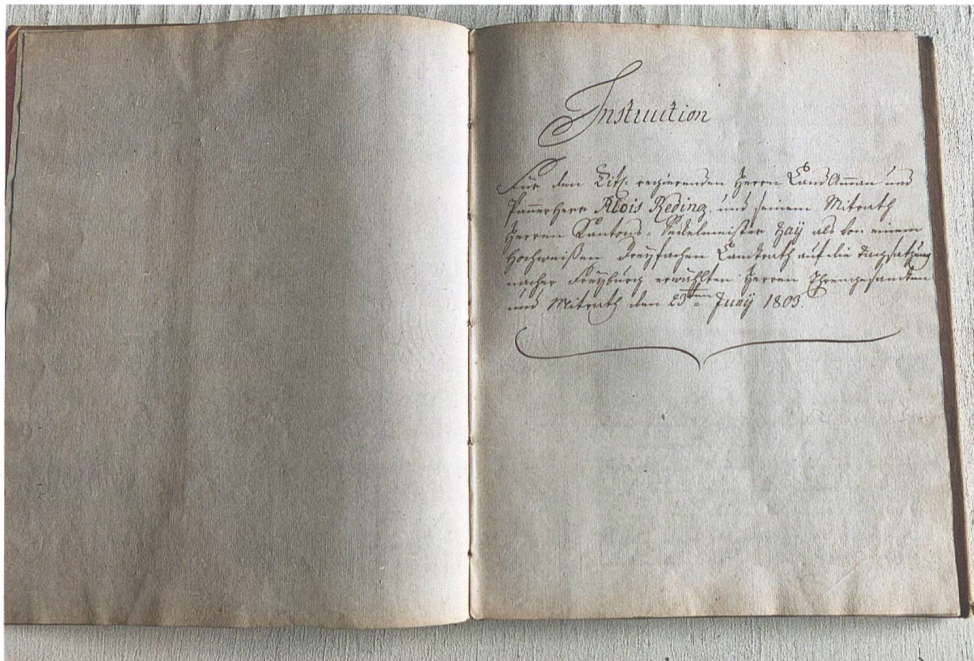 Instruction
Für den Titl. regierenden Herren LandAmman und
Pannerherr Alois Reding, und seinem Mitrath
Herren Kantons-Seckelmeister Zaÿ als von einem
Hochweißen dreÿfachen Landrath auf die Tagsatzung
nacher Freÿburg erwählten Herren Ehrengesandten
und Mitrath den 23ten Junÿ 1803.